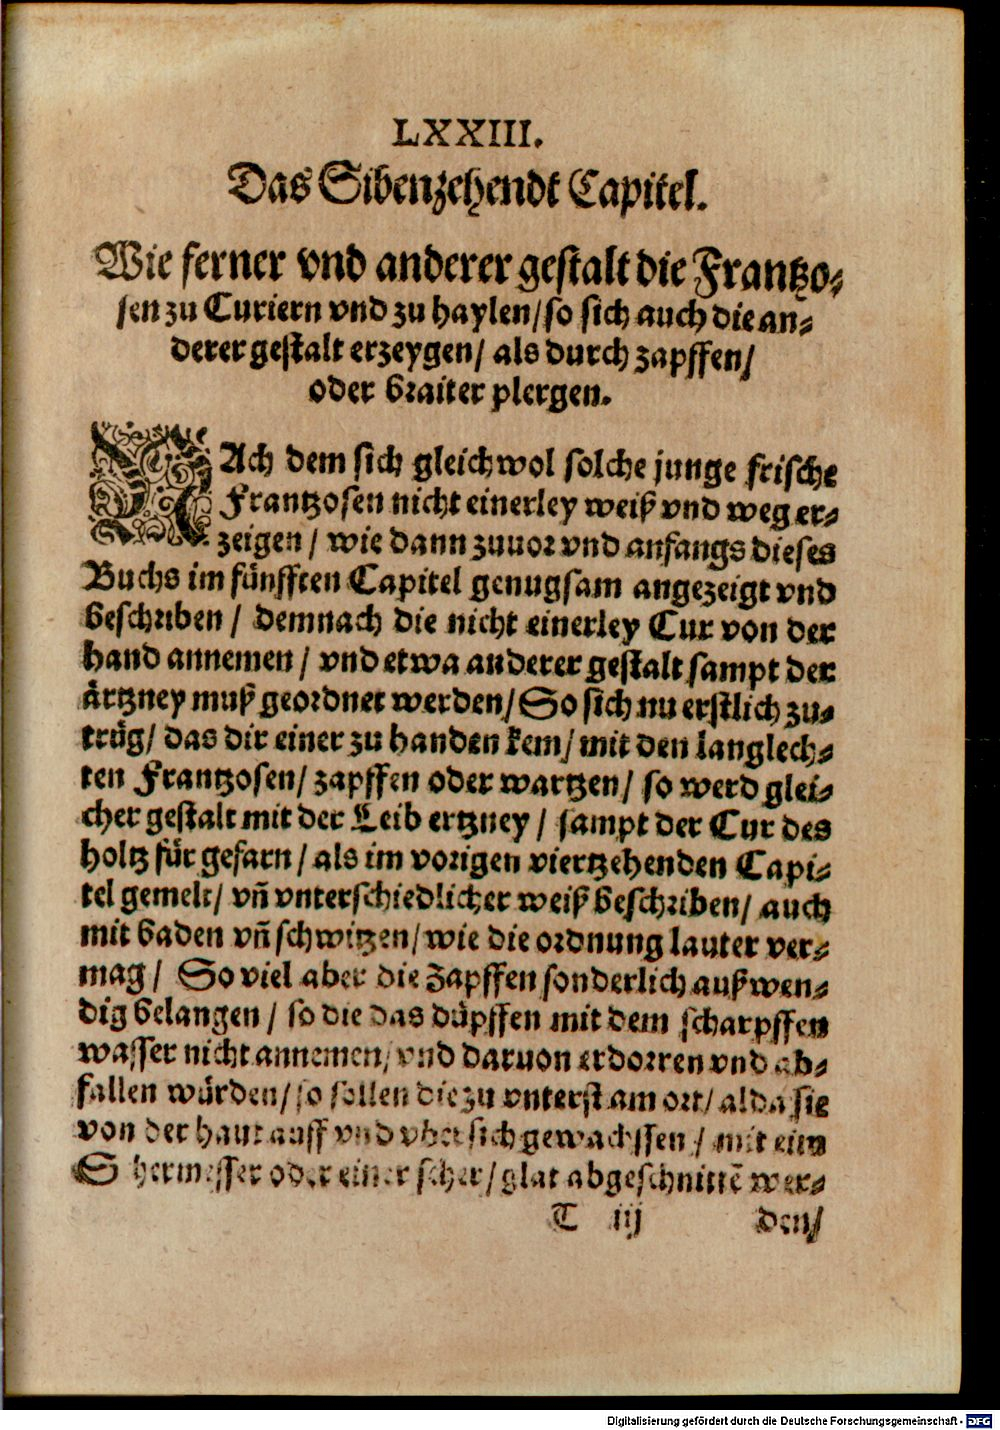 LXXIII.
Das Sibenzehendt Capitel.
Wie ferner vnd anderer gestalt die Frantzo-
sen zu Curiern vnd zu haylen/ so sich auch die an-
derer gestalt erzeygen/ als durch zapffen/
oder braiter plergen.
NAch dem sich gleichwol solche junge frische
Frantzosen nicht einerley weiß vnd weg er-
zeigen/ wie dann zuuor vnd anfangs dieses
Buchs im fünfften Capitel genugsam angezeigt vnd
beschriben/ demnach die nicht einerley Cur von der
hand annemen/ vnd etwa anderer gestalt sampt der
ärtzney muß geordnet werden/ So sich nu erstlich zu-
trüg/ das dir einer zu handen kem/ mit den langlech-
ten Frantzosen/ zapffen oder wartzen/ so werd glei-
cher gestalt mit der Leib ertzney/ sampt der Cur des
holtz für gefarn/ als im vorigen viertzehenden Capi-
tel gemelt/ vñ vnterschiedlicher weiß beschriben/ auch
mit baden vñ schwitzen/ wie die ordnung lauter ver-
mag/ So viel aber die Zapffen sonderlich außwen-
dig belangen/ so die das düpffen mit dem scharpffen
wasser nicht annemen/ vnd daruon erdorren vnd ab-
fallen würden/ so sollen die zu vnterst am ort/ alda sie
von der haut auff vnd vber sich gewachssen/ mit eim
Schermesser oder einer scher/ glat abgeschnittē wer-
T iij den/
Digitalisierung gefördert durch die Deutsche Forschungsgemeinschaft - DFG